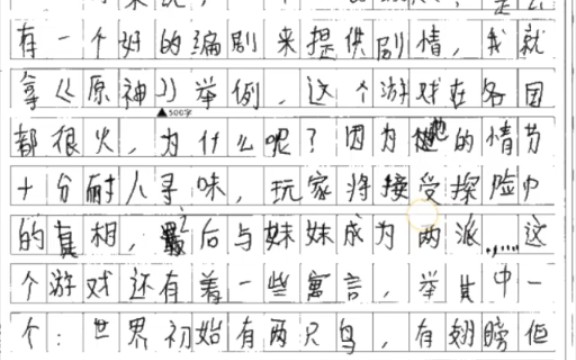 有一个好的编剧来提供剧情，我就
拿《《原神》》举例，这个游戏在各国
▲500字
都很火，为什么呢？因为它的情节
十分耐人寻味，玩家将接受探险中
的真相，最后与妹妹成为两派……这
个游戏还有着一些寓言，举其中一
个：世界初始有两只鸟，有翅膀但